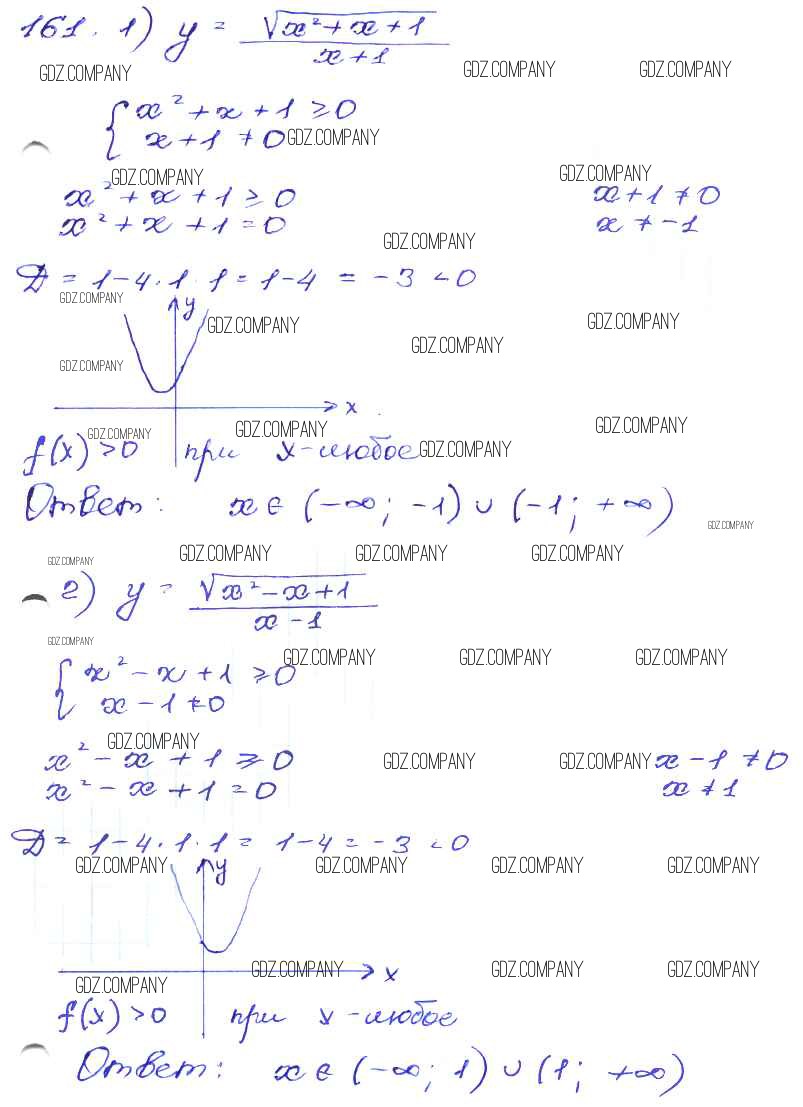 161. 1) y = √(x² + x + 1) / (x + 1)
GDZ.COMPANY GDZ.COMPANY GDZ.COMPANY
{ x² + x + 1 ≥ 0
x + 1 ≠ 0 GDZ.COMPANY
GDZ.COMPANY GDZ.COMPANY
x² + x + 1 ≥ 0 x + 1 ≠ 0
x² + x + 1 = 0 x ≠ -1
GDZ.COMPANY
Д = 1 - 4 · 1 · 1 = 1 - 4 = -3 < 0
GDZ.COMPANY y
GDZ.COMPANY GDZ.COMPANY
GDZ.COMPANY GDZ.COMPANY
x
GDZ.COMPANY GDZ.COMPANY GDZ.COMPANY
f(x) > 0 при x - любое GDZ.COMPANY
Ответ: x ∈ (-∞; -1) ∪ (-1; +∞)
GDZ.COMPANY
GDZ.COMPANY GDZ.COMPANY GDZ.COMPANY GDZ.COMPANY
2) y = √(x² - x + 1) / (x - 1)
GDZ.COMPANY
GDZ.COMPANY GDZ.COMPANY GDZ.COMPANY
{ x² - x + 1 ≥ 0
x - 1 ≠ 0
GDZ.COMPANY
x² - x + 1 ≥ 0 GDZ.COMPANY GDZ.COMPANY x - 1 ≠ 0
x² - x + 1 = 0 x ≠ 1
Д = 1 - 4 · 1 · 1 = 1 - 4 = -3 < 0
GDZ.COMPANY y GDZ.COMPANY GDZ.COMPANY GDZ.COMPANY
GDZ.COMPANY x GDZ.COMPANY GDZ.COMPANY
GDZ.COMPANY
f(x) > 0 при x - любое
Ответ: x ∈ (-∞; 1) ∪ (1; +∞)